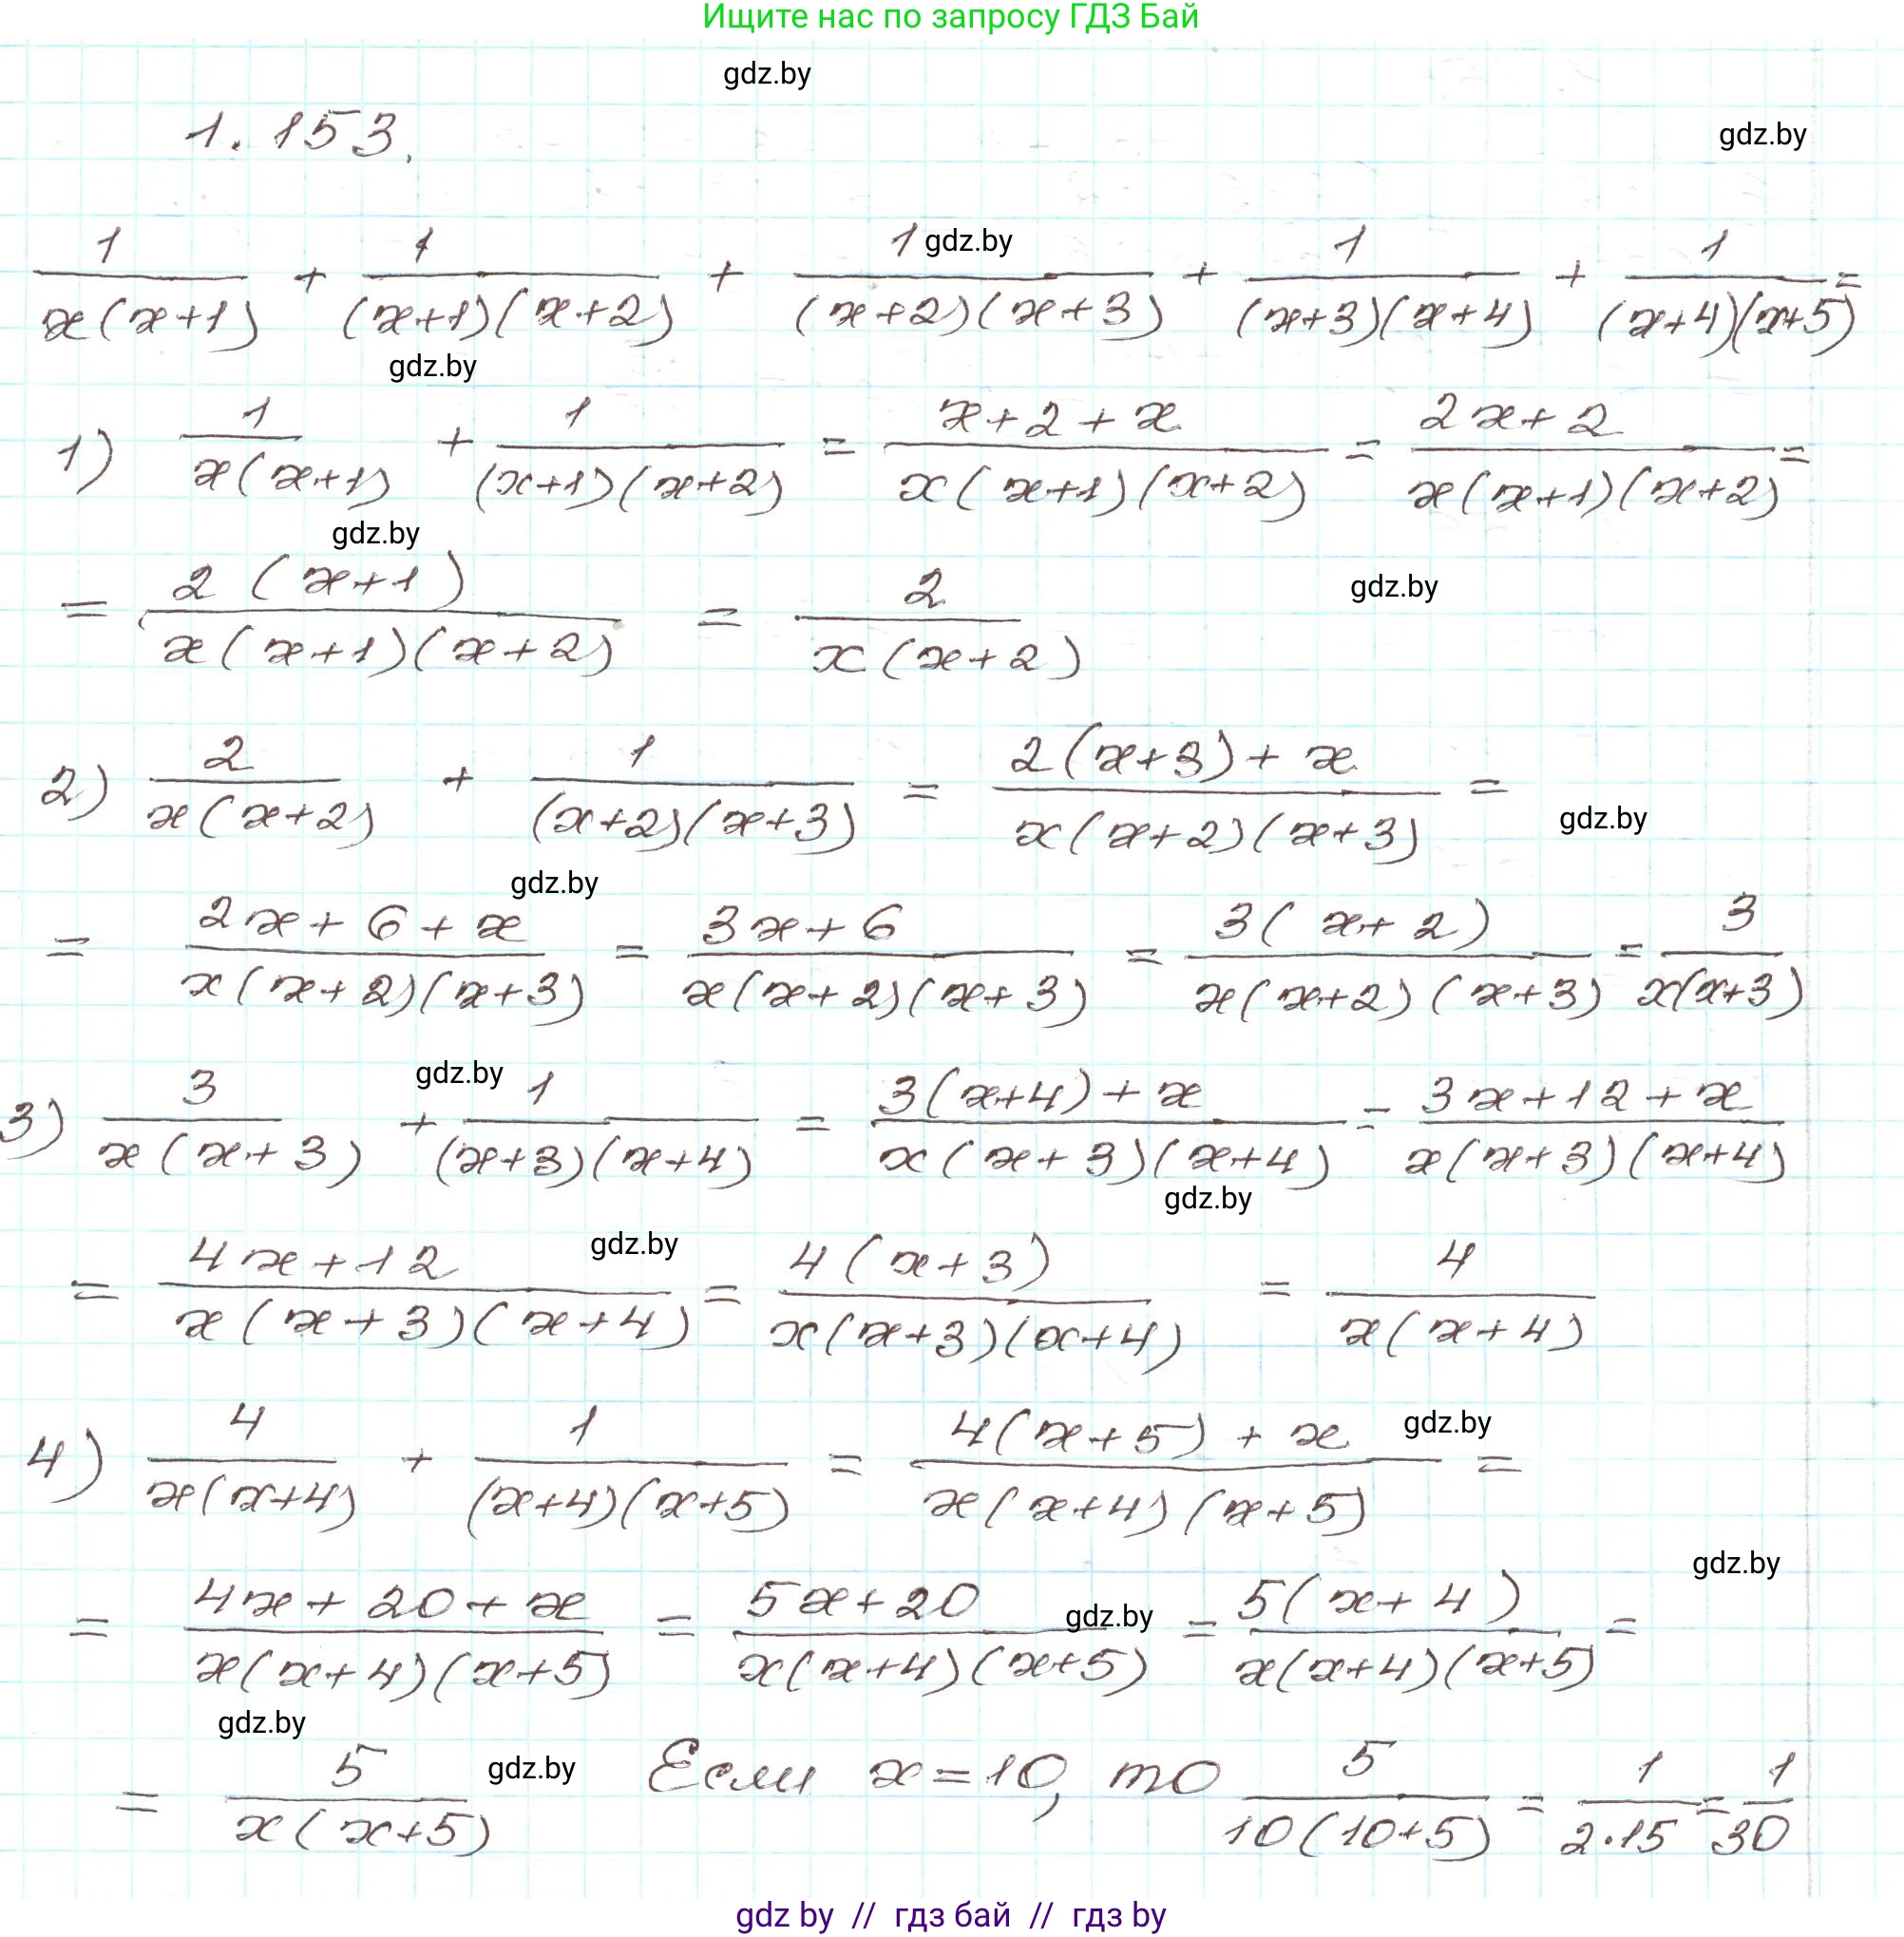 Ищите нас по запросу ГДЗ Бай
gdz.by
1.153.
gdz.by
1/(x(x+1)) + 1/((x+1)(x+2)) + 1/((x+2)(x+3)) + 1/((x+3)(x+4)) + 1/((x+4)(x+5)) =
gdz.by
gdz.by
1) 1/(x(x+1)) + 1/((x+1)(x+2)) = (x+2+x)/(x(x+1)(x+2)) = (2x+2)/(x(x+1)(x+2)) =
gdz.by
= (2(x+1))/(x(x+1)(x+2)) = 2/(x(x+2))
gdz.by
2) 2/(x(x+2)) + 1/((x+2)(x+3)) = (2(x+3)+x)/(x(x+2)(x+3)) =
gdz.by
gdz.by
= (2x+6+x)/(x(x+2)(x+3)) = (3x+6)/(x(x+2)(x+3)) = (3(x+2))/(x(x+2)(x+3)) = 3/(x(x+3))
gdz.by
3) 3/(x(x+3)) + 1/((x+3)(x+4)) = (3(x+4)+x)/(x(x+3)(x+4)) = (3x+12+x)/(x(x+3)(x+4))
gdz.by
gdz.by
= (4x+12)/(x(x+3)(x+4)) = (4(x+3))/(x(x+3)(x+4)) = 4/(x(x+4))
4) 4/(x(x+4)) + 1/((x+4)(x+5)) = (4(x+5)+x)/(x(x+4)(x+5)) =
gdz.by
gdz.by
= (4x+20+x)/(x(x+4)(x+5)) = (5x+20)/(x(x+4)(x+5)) = (5(x+4))/(x(x+4)(x+5)) =
gdz.by
gdz.by
= 5/(x(x+5)) Если x=10, то 5/(10(10+5)) = 1/(2·15) = 1/30
gdz.by
gdz by // гдз бай // гдз by